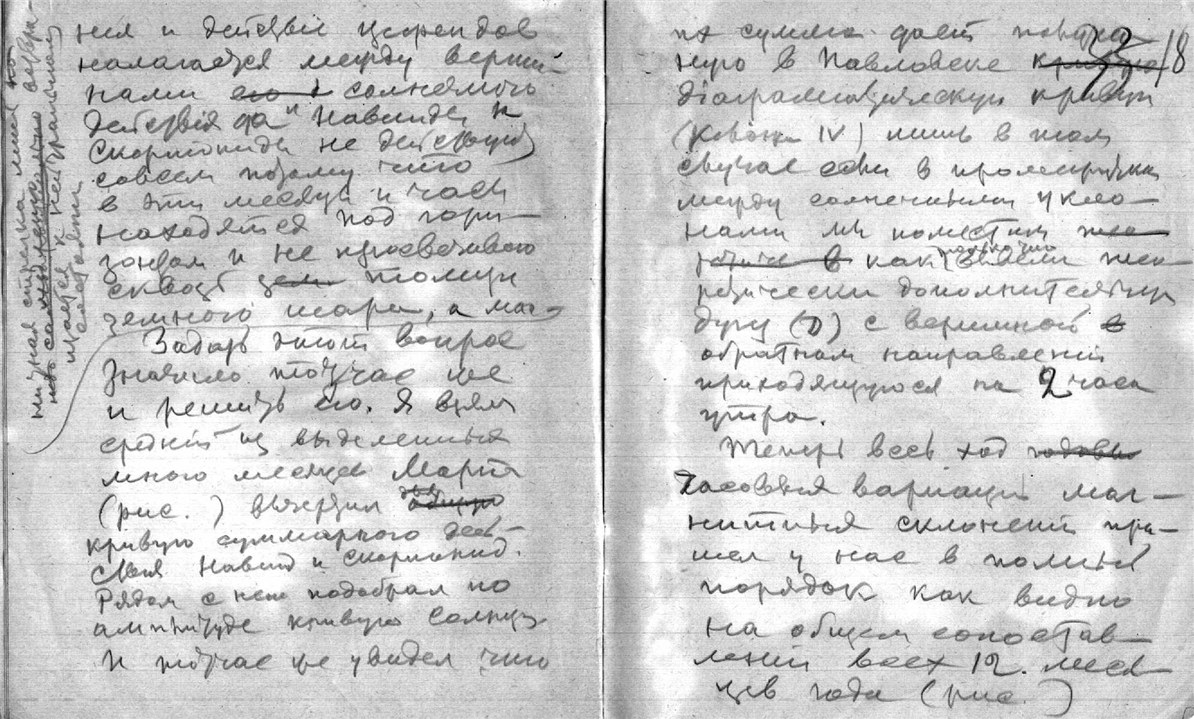 ния и действие цефеидов
налагается между верши-
нами его и солнечного
действия да и Навииды и
Скорпиониды не действуют
совсем потому что
в эти месяцы и часы
находятся под гори-
зонтом и не
сквозь толщи
земного шара, а маг-
нитная стрелка
Задать этот вопрос
значило тотчас же
и решить его. Я взял
средний из выделенных
мною месяцев Марта
(рис. ) вычертил
кривую суммарного дей-
ствия Навиид и Скорпионид.
Рядом с нею подобрал по
амплитуде кривую Солнца.
И тотчас же увидел что
их сумма дает
18
ную в Павловске кривую
диаграмматическую кривую
IV) лишь в том
случае если в промежутки
между солнечными укло-
нами мы поместим
как только что вывели тео-
ретически дополнительную
дугу (D) с вершиной в
обратном направлении
приходящуюся на 2 часа
утра.
Теперь весь ход годовых
часовых вариаций маг-
нитных склонений при-
шел у нас в полный
порядок как видно
на общем сопостав-
лении всех 12. меся-
цев года (рис. )